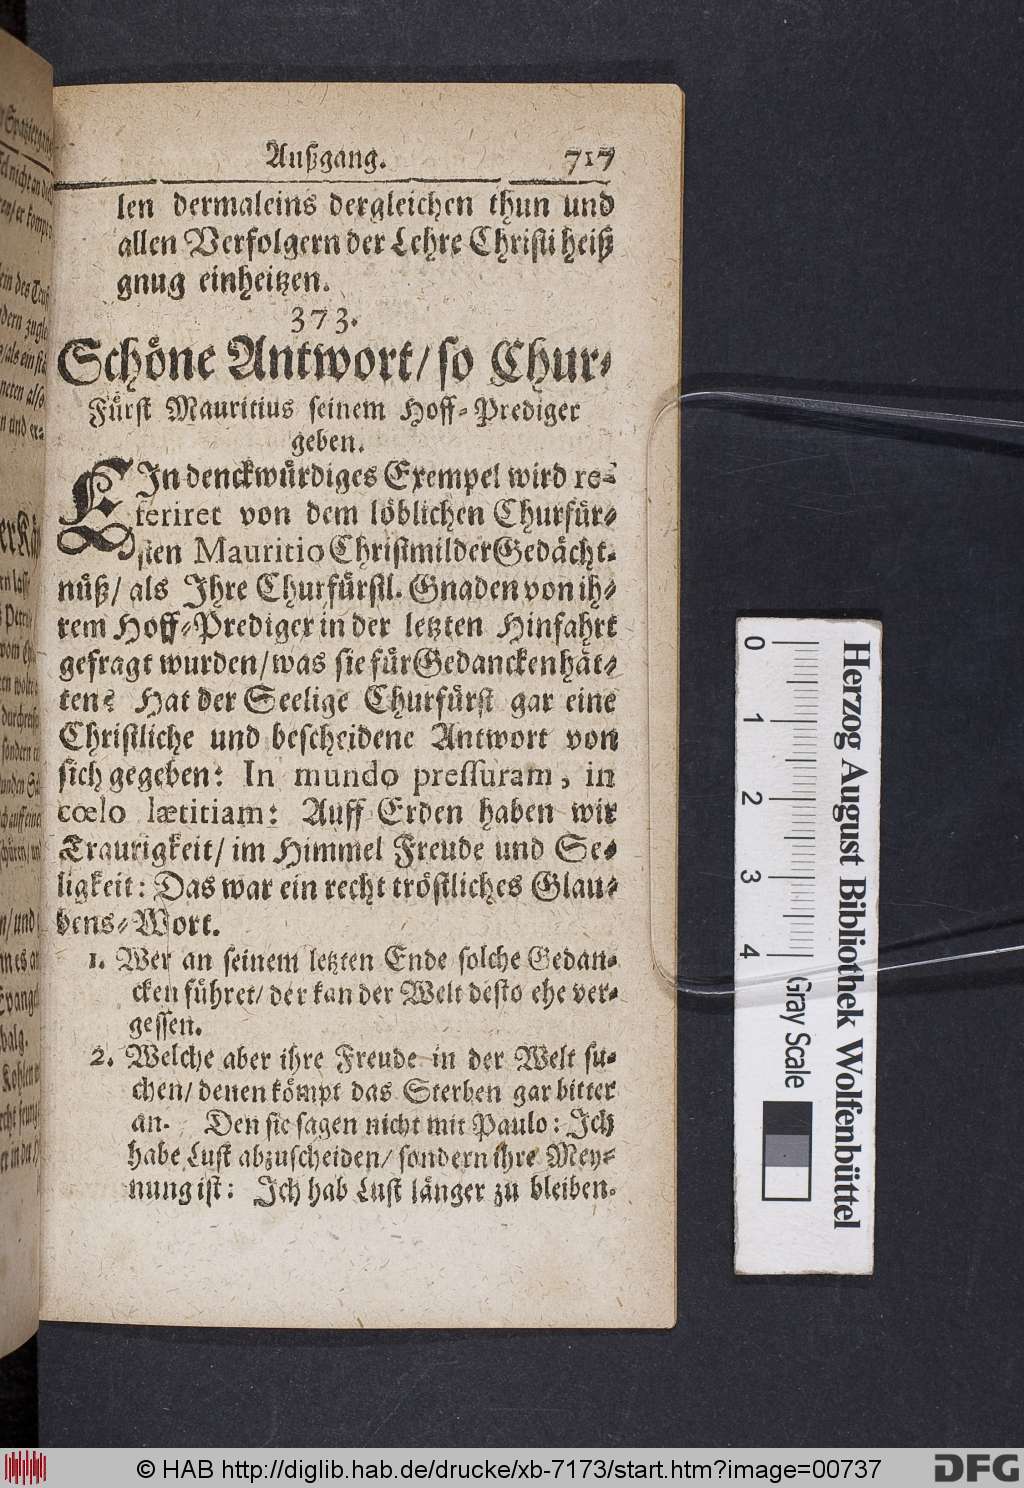 Außgang. 717
len dermaleins dergleichen thun und
allen Verfolgern der Lehre Christi heiß
gnug einheitzen.
373.
Schöne Antwort/ so Chur-
Fürst Mauritius seinem Hoff-Prediger
geben.
EIn denckwürdiges Exempel wird re-
feriret von dem löblichen Churfür-
sten Mauritio Christmilder Gedächt-
nüß/ als Ihre Churfürstl. Gnaden von ih-
rem Hoff-Prediger in der letzten Hinfahrt
gefragt wurden/ was sie für Gedancken hät-
ten? Hat der Seelige Churfürst gar eine
Christliche und bescheidene Antwort von
sich gegeben: In mundo pressuram, in
cœlo lætitiam: Auff Erden haben wir
Traurigkeit/ im Himmel Freude und Se-
ligkeit: Das war ein recht tröstliches Glau-
bens-Wort.
1. Wer an seinem letzten Ende solche Gedan-
cken führet/ der kan der Welt desto ehe ver-
gessen.
2. Welche aber ihre Freude in der Welt su-
chen/ denen kömpt das Sterben gar bitter
an. Den sie sagen nicht mit Paulo: Ich
habe Lust abzuscheiden/ sondern ihre Mey-
nung ist: Ich hab Lust länger zu bleiben.
0 1 2 3 4 Gray Scale
Herzog August Bibliothek Wolfenbüttel
© HAB http://diglib.hab.de/drucke/xb-7173/start.htm?image=00737
DFG